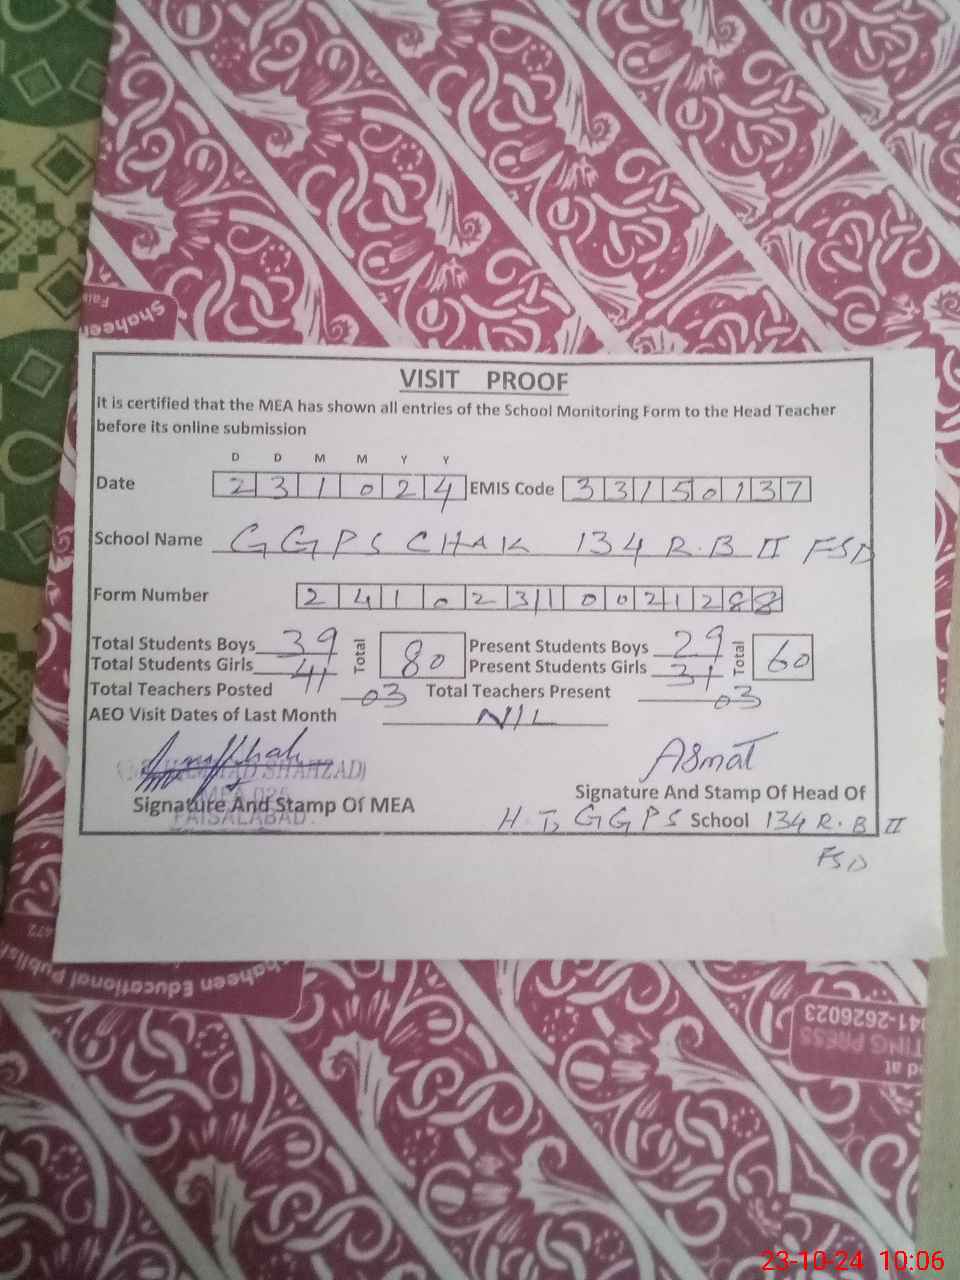 Shaheen
VISIT PROOF
It is certified that the MEA has shown all entries of the School Monitoring Form to the Head Teacher
before its online submission
D D M M Y Y
Date 231024 EMIS Code 33150137
School Name GGPS CHAK 134 R.B II FSD
Form Number 24102310021288
Total Students Boys 39 Total 80 Present Students Boys 29 Total 60
Total Students Girls 41 Present Students Girls 31
Total Teachers Posted 03 Total Teachers Present 03
AEO Visit Dates of Last Month NIL
Asmat
SHAHZAD)
Signature And Stamp Of MEA Signature And Stamp Of Head Of
FAISALABAD H T, GGPS School 134 R.B II
FSD
Shaheen Educational Publis
041-2626023
TING PRESS
d at
23-10-24 10:06